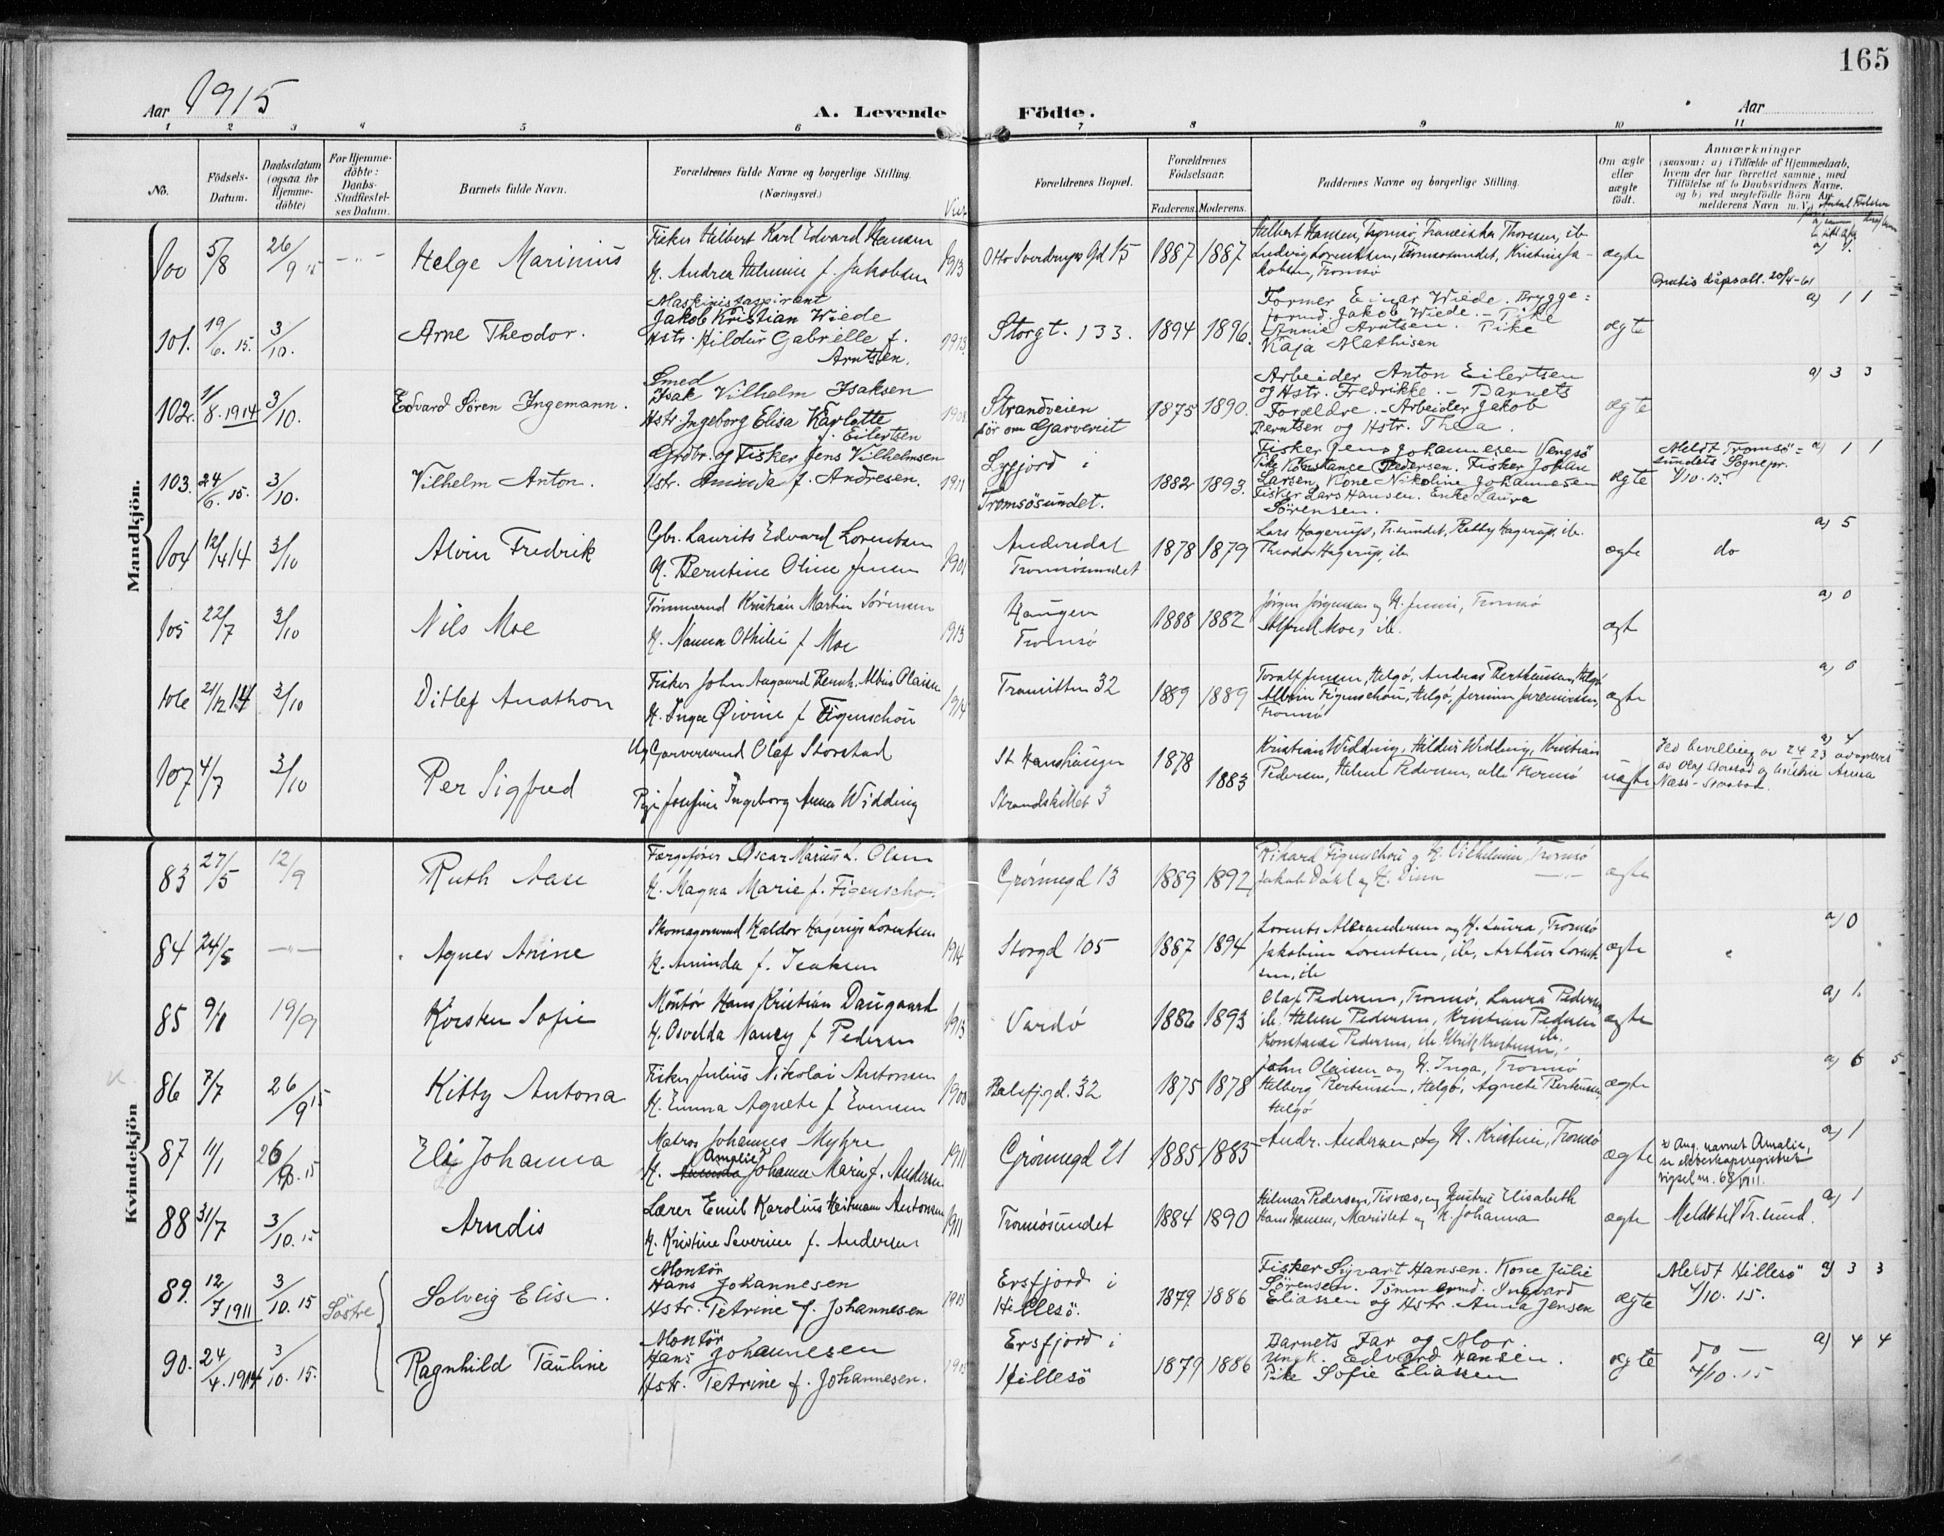 165
Aar 1915
A. Levende Födte.
Aar
1 2 3 4 5 6 7 8 9 10 11
No.
Födsels-Datum.
Daabsdatum (ogsaa for Hjemme-döbte)
For Hjemme-döbte: Daabs-Stadfæstel-ses Datum.
Barnets fulde Navn.
Forældrenes fulde Navne og borgerlige Stilling. (Næringsvei.)
Forældrenes Bopæl.
Forældrenes Födselsaar.
Faderens. Moderens.
Faddernes Navne og borgerlige Stilling.
Om ægte eller uægte födt.
Anmærkninger
(saasom: a) i Tilfælde af Hjemmedaab,
hvem der har forrettet samme, med
Tilföielse af to Daabsvidners Navne,
og b) ved uægtefödte Börn An-
melderens Navn m. V.)
Mandkjön.
100 5/8 26/9 15 Helge Marinius
Fisker Helbert Karl Edvard Hansen
H. Andrea Helmine f. Jakobsen 1913
Otto Sverdrups Gd 15 1887 1887
Helbert Hansen, Tromsö, Franciska Thoresen, ib.
Ludvig Lorentsen, Tromsösundet, Kristine Ja-
kobsen, Tromsö
ægte
Gratis dåpsatt. 20/4-61
101. 19/6. 15. 3/10. Arne Theodor.
Maskinistaspirant
Jakob Kristian Wiede
Hstr. Hildur Gabrielle f.
Arntsen. 1913.
Storgt. 133. 1894 1896.
Former Einar Wiede. Brygge=
formd. Jakob Wiede. - Pike
Annie Arntsen. Pike
Kaja Mathisen
ægte a) 1 1
102. 1/8. 1914 3/10. Edvard Sören Ingemann.
Smed
Isak Vilhelm Isaksen
Hstr Ingeborg Elisa Karlotte
f. Eilertsen 1908
Strandveien
sör om Garveriet 1875 1890.
Arbeider Anton Eilertsen
og Hstr. Fredrikke. - Barnets
Forældre. - Arbeider Jakob
Berntsen og Hstr. Thea.
ægte a) 3 3
103. 24/6. 15. 3/10. Vilhelm Anton.
Grdbr. og Fisker Jens Vilhelmsen
Hstr. Aminda f. Andresen. 1911
Lyfjord i
Tromsösundet. 1882 1893.
Fisker Jens Johannesen Vengsö
Pike Konstance Pedersen. Fisker Johan
Larsen, Kone Nikoline Johannesen
Fisker Lars Hansen. Enke Laura
Sörensen.
ægte
Meldt Tromsö=
sundets Sognepr.
4/10. 15. a) 1 1
104 12/4 14 3/10 Alvin Fredrik
Gbr. Laurits Edvard Lorentsen
H. Berntine Oline Jensen 1901
Andersdal
Tromsösundet 1878 1879
Lars Hagerup, Tr.sundet, Betty Hagerup, ib.
Theodor Hagerup, ib.
ægte do a) 5
105 22/7 3/10 Nils Moe
Tömmermd Kristian Martin Sörensen
H. Nanna Othilie f Moe 1913
Haugen
Tromsö 1888 1882
Jörgen Jörgensen og H. Jenni, Tromsö
Alfred Moe, ib.
ægt a) 0
106 21/12 14 3/10 Ditlef Anathon
Fisker John Aagaard Bernh. Albius Olaisen
H. Inga Öivine f Figenschou 1914
Transitten 32 1889 1889
Toralf Jensen, Helgö, Andreas Berthinsen, Helgö
Albrin Figenschou, Helgö, Jermine Jeremiassen,
Tromsö
ægte a) 0
107 4/7 3/10 Per Sigfred
Ug Garversvend Olaf Storstad
Pige Josefine Ingeborg Anna Widding
St Hanshaugen
Strandskillet 3 1878 1883
Kristian Widding, Hildur Widding, Kristian
Pedersen, Helene Pedersen, alle Tromsö
uægte
Ved bevilling av 24/1 23 adopteret
av Olaf Storstad og hustru Anna
Næss-Storstad. a) 4
Kvindekjön
83 27/5 12/9 Ruth Aase
Færgeförer Oscar Marius L. Olsen
H. Magna Marie f. Figenschou
Grönnegd 13 1889 1892
Rikard Figenschou og H. Vilhelmine, Tromsö
Jakob Dahl og H. Dina —"—
ægte
84 24/5 —"— Agnes Anine
Skomagersvend Haldor Hagerup Lorentsen
H. Aminda f. Isaksen 1914
Storgd 105 1887 1894
Lorents Alexandersen og H. Laura, Tromsö
Jakobine Lorentsen, ib, Arthur Lorent-
sen, ib
ægte a) 0
85 9/1 19/9 Korsken Sofie
Montör Hans Kristian Daugaard
H. Osvelda Nancy f Pedersen 1913
Vardö 1882 1893
Olaf Pedersen, Tromsö, Laura Pedersen
ib. Helene Pedersen, Kristian Pedersen ib.
Konstanse Pedersen, ib.
ægte a) 1.
86 7/7 26/9 15 Kitty Antona
Fisker Julius Nikolai Antonsen
H. Emma Agnete f Evensen 1900
Balsfjgd. 32 1875 1878
John Olaisen og H. Inga, Tromsö
Helberg Bertinsen, Helgö, Agnete Bertinsen
Helgö
ægte a) 6 5
87 11/1 26/9. 15 Eli Johanna
Matros Johannes Myhre
Amalie
H. Johanne Marie f. Andersen 1911
Grönnegd 21 1885 1885
Andr. Andersen og H. Kristine, Tromsö
ægte
Ang. navnet Amalie,
se ekteskapsregistret
vigsel nr. 68/1911. a) 1
88 31/7 3/10. 15 Arndis
Lærer Emil Karolius Heitmann Antonsen
H. Kristine Severine f. Andersen 1911
Tromösundet 1884 1890
Hilmar Pedersen, Tisnæs, og Hustru Elisabeth
Hans Hansen, og H. Johanna
ægte Meldt til Tr.sund. a) 1
89. 12/7 1911 3/10. 15 Söstre Solveig Elise.
Montör
Hans Johannesen
Hstr. Petrine f. Johannesen
Ersfjord i
Hillesö. 1879 1886
Fisker Sivart Hansen. Kone Julie
Sörensen. Tömmermd. Ingvard
Eliassen og Hstr. Anna Jensen
ægte
Meldt Hillesö
4/10. 15. a) 3 3
90. 24/4. 1914 3/10. 15. Ragnhild Pauline
Montör
Hans Johannesen
Hstr. Petrine f. Johannesen.
Ersfjord i
Hillesö 1879 1886
Barnets Far og Mor.
Ungk. Edvard Hansen.
Pike Sofie Eliassen
ægte
Do —
4/10. 15 a) 4 4